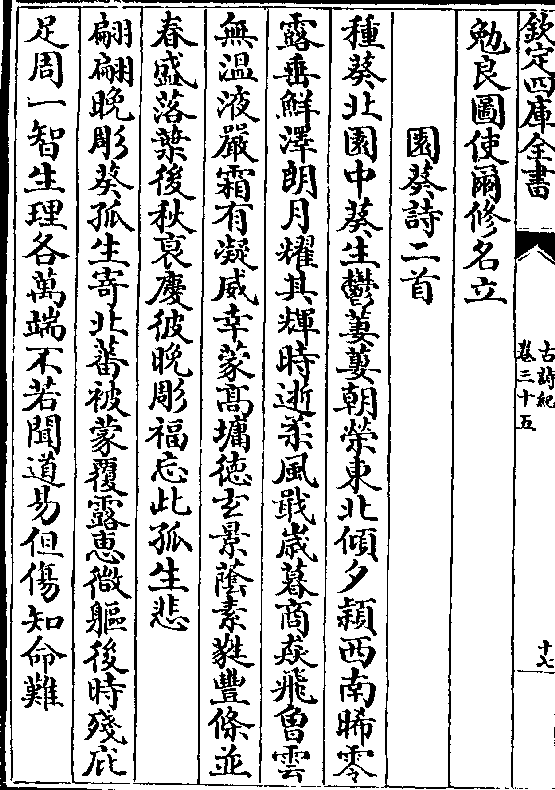 欽定四庫全書
古詩紀
卷三十五
十七
勉良圖使爾修名立
園葵詩二首
種葵北園中葵生鬱萋萋朝榮東北傾夕穎西南晞零
露垂鮮澤朗月耀其輝時逝柔風戢嵗暮商猋飛曾雲
無溫液嚴霜有凝威幸蒙髙墉徳玄景蔭素蕤豐條並
春盛落葉後秋衰慶彼晚彫福忘此孤生悲
翩翩晚彫葵孤生寄北蕃被蒙覆露惠微軀後時殘庇
足周一智生理各萬端不若聞道易但傷知命難